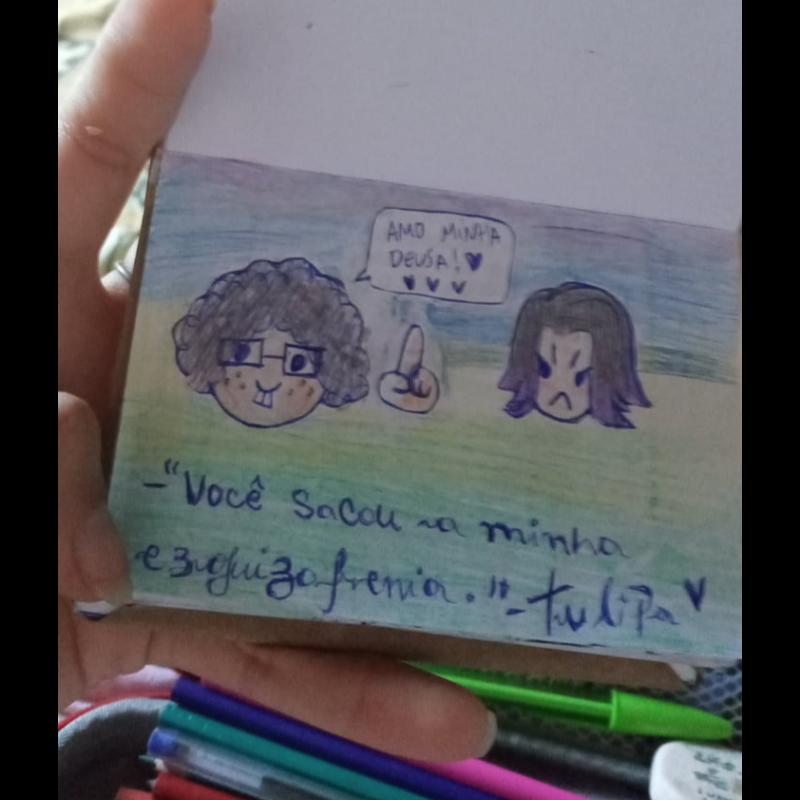 AMO MINHA
DEUSA! ♥
♥ ♥ ♥
-"Você sacou a minha
ezquizofrenia."- tulipa ♥